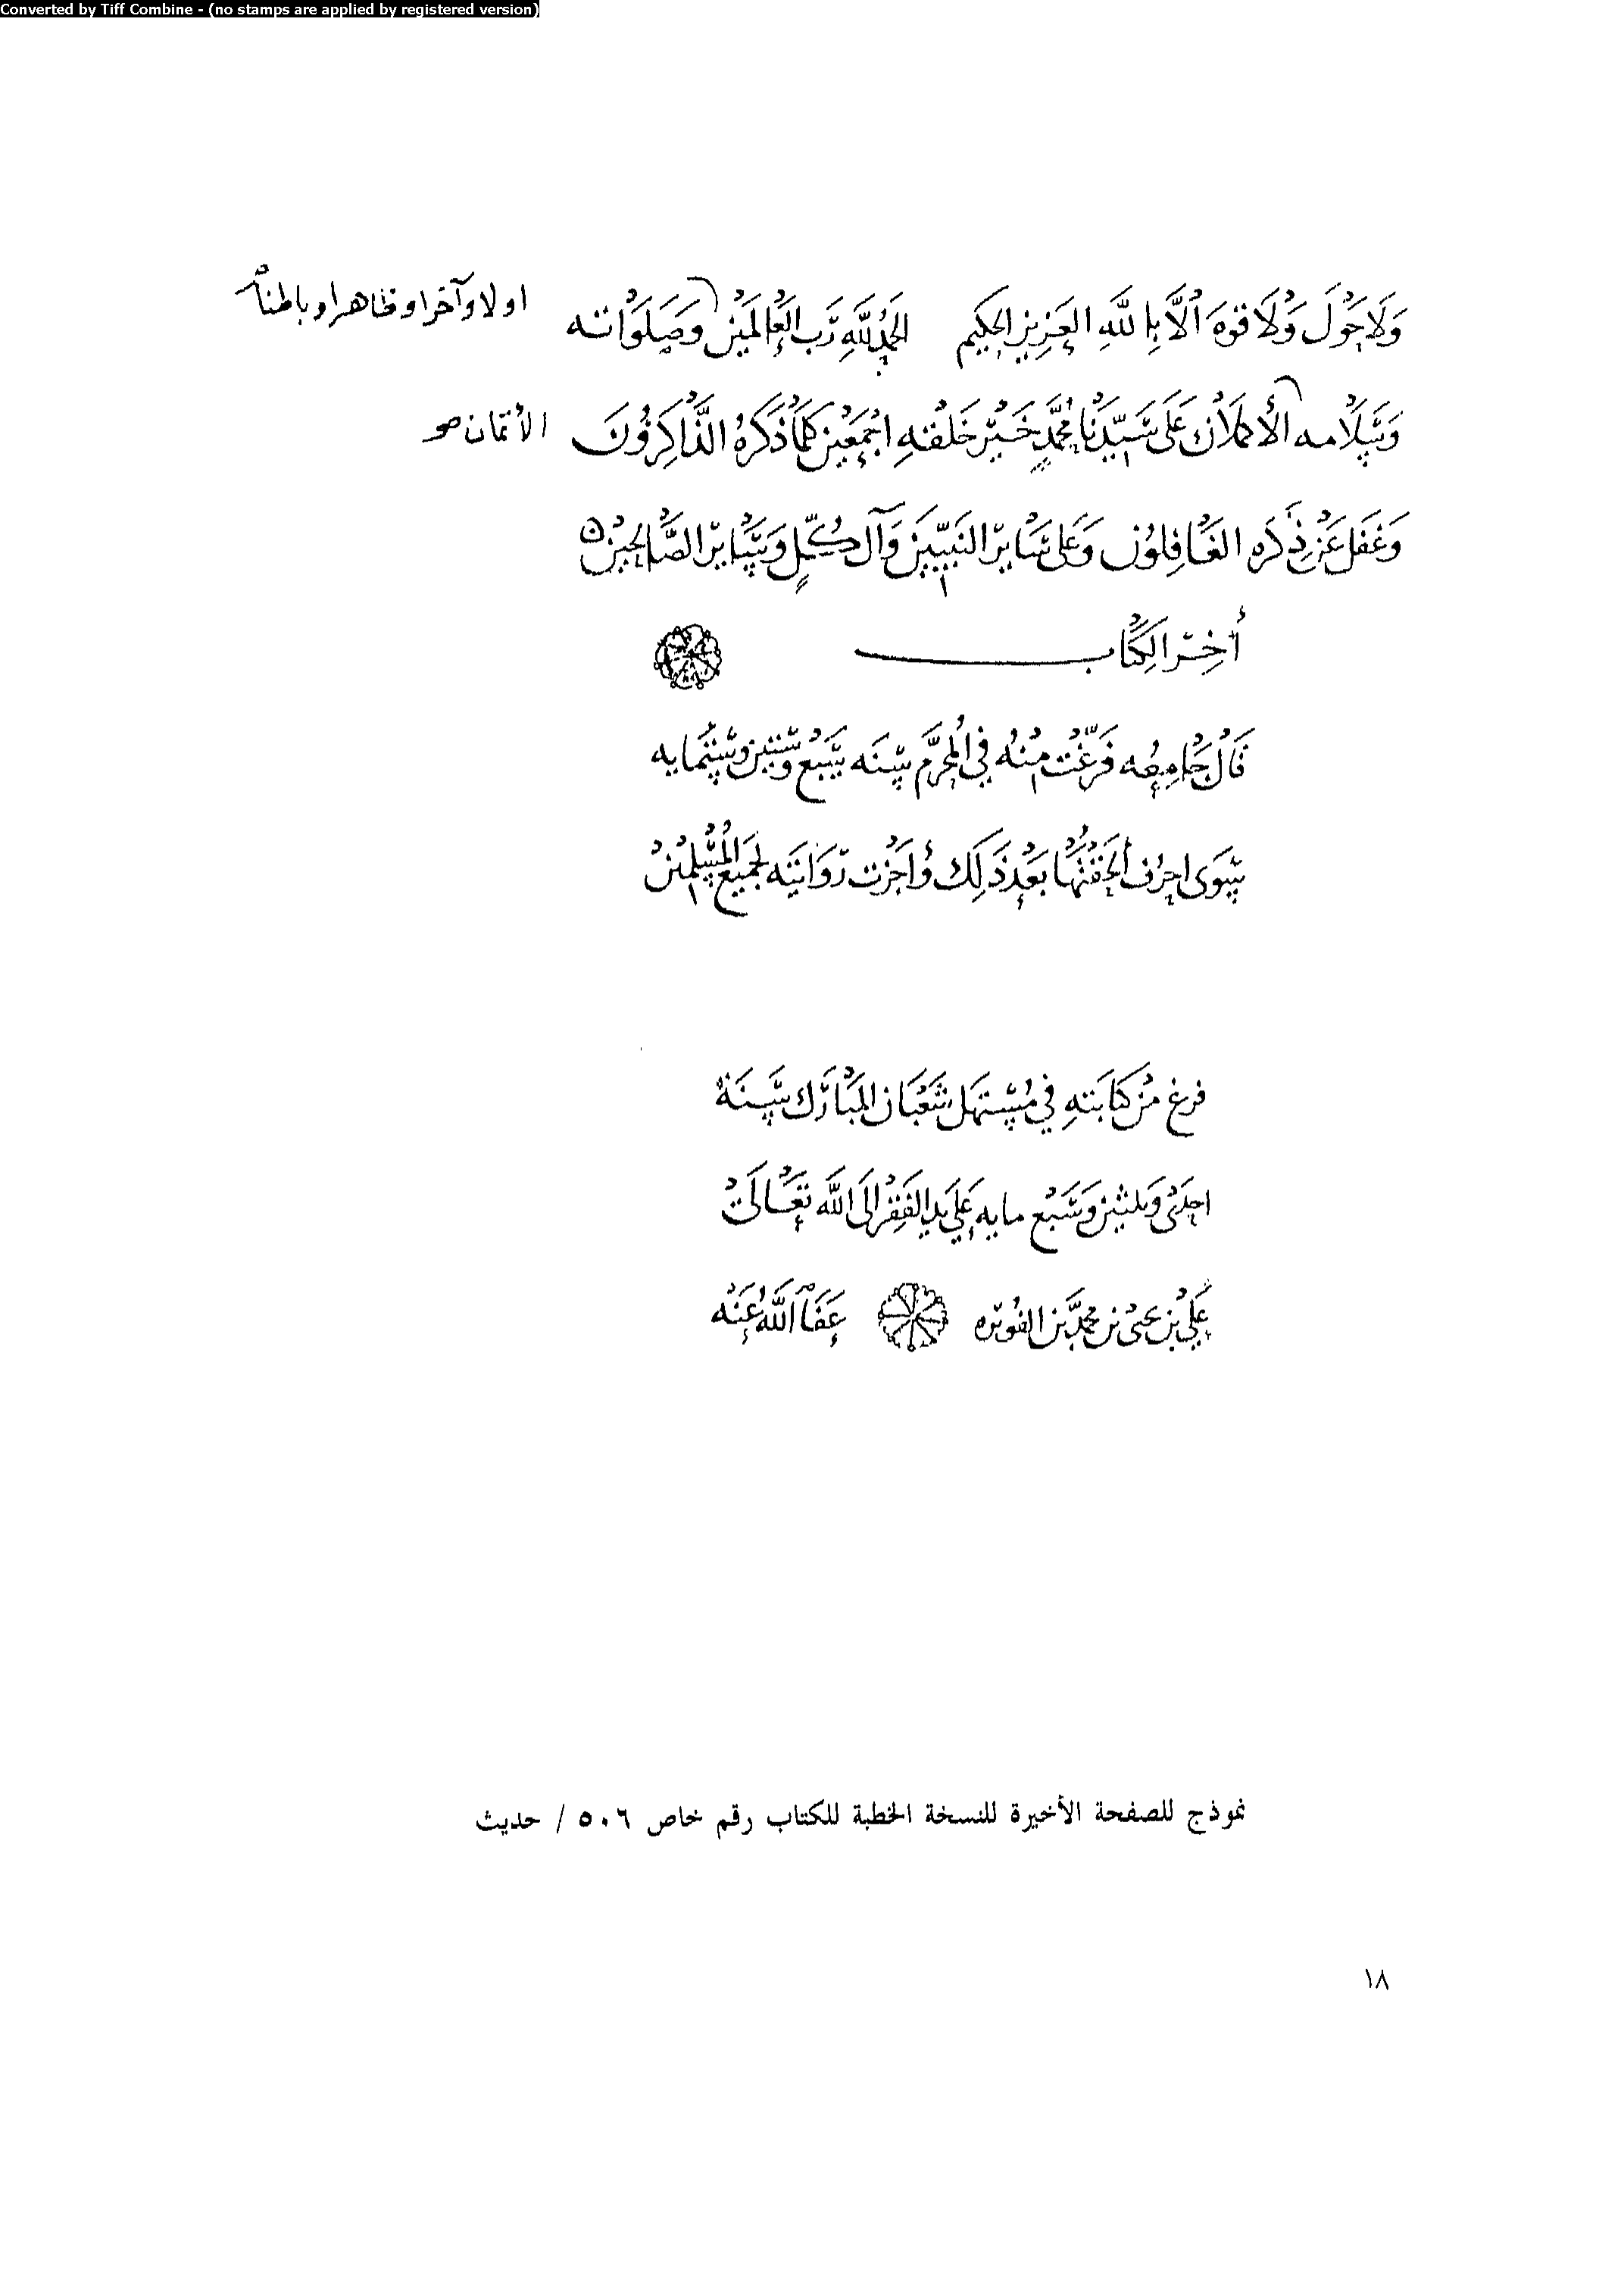 Converted by Tiff Combine - (no stamps are applied by registered version)
وَلَا حَوْلَ وَلَا قوه اِلَّا بِاللهِ العَزِيزِ الحَكِيم الحمدُ لِلَّهِ رَبِّ العَالَمِيْنَ وَصَلَوَاته اولا وآخرا وظاهرا وباطنا
وَسَلَامه الأكملان عَلَى سَيِّدِنَا مُحَمَّدٍ خَيْرِ خَلْقهِ اجْمَعِيْنَ كلمَا ذَكَرَهُ الذَّاكِرُونَ الأتمان صح
وَغَفَلَ عَنْ ذِكره الغَافِلُوْن وَعَلى سَايرِ النَّبِيِّينَ وَآل كُلٍّ وَسَايرِ الصَّالحِيْن
أخِر الكِتَاب
قَالَ جَامِعُه فَرَغْت مِنْهُ في المُحَرَّم سَنَه سَبْع وَسِتّيْن وَستّمايه
سِوَى احرُف ألحقْتُهَا بَعْدَ ذَلِكَ وأجَزْت رِوَايَتَه لجَمِيع المُسْلِمِيْن
فرغ مِنْ كتَابَتهِ في مُسْتهَل شَعْبَان المبَارَك سَنَة
احدَى وثلثين وَسَبْع مايه عَلَى يد الفَقِير الَى اللَّه تعَالَى
عَلي بْن يحيَى بن محمَّد بن عَفَا اللَّهُ عَنْه
نموذج للصفحة الأخيرة للنسخة الخطبة للكتاب رقم خاص ٥٠٦ / حديث
١٨